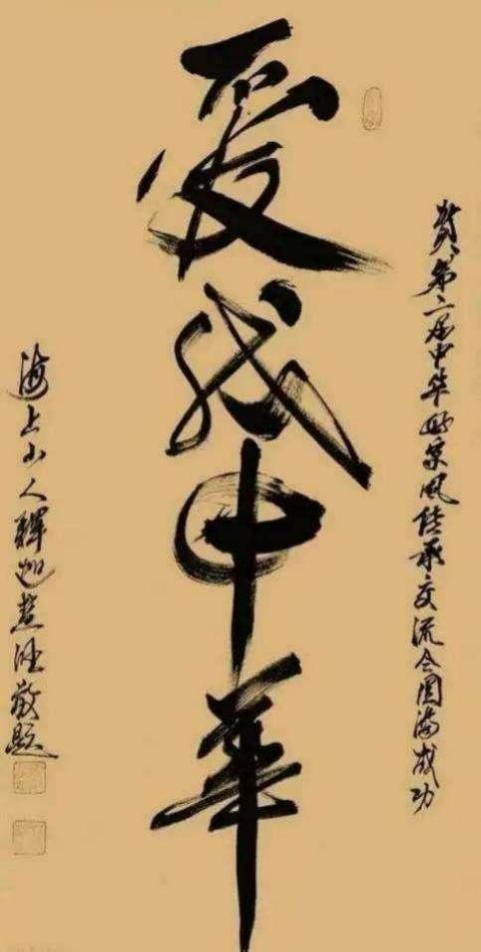 贺第二届中华好家风传承交流会圆满成功
愛我中華
海上山人 敬题